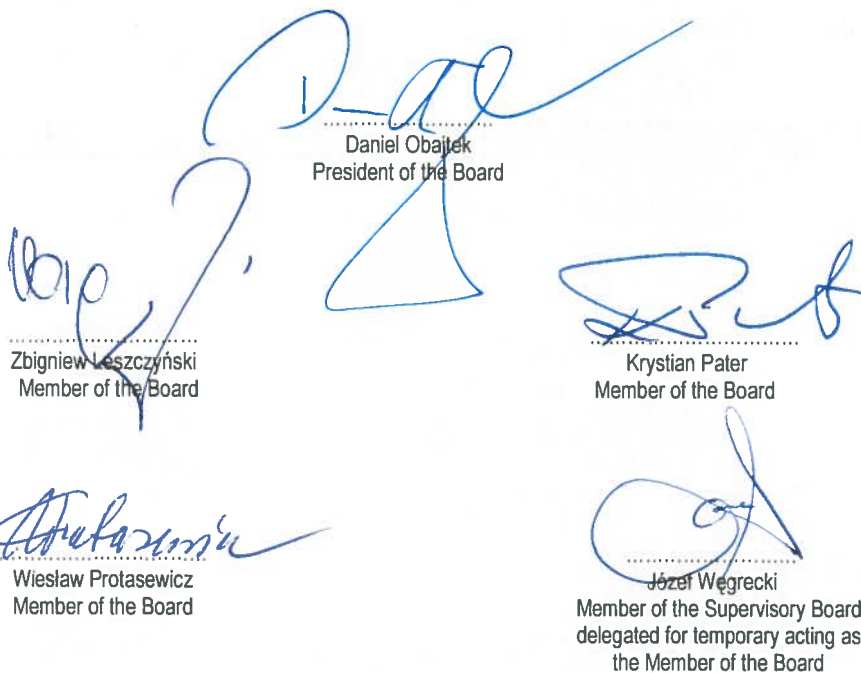 Daniel Obajtek
President of the Board
Zbigniew Leszczyński
Member of the Board
Krystian Pater
Member of the Board
Wiesław Protasewicz
Member of the Board
Józef Węgrecki
Member of the Supervisory Board
delegated for temporary acting as
the Member of the Board